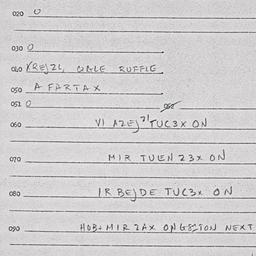 020 0
030 0
040 KREJZL, OBLE RUFFLE
050 A FARTAX
051 0
060 VI AZEJ TUC3X ON
070 MIR TUEN 23X ON
080 IR BEJDE TUC3X ON
090 HOB+MIR 2AX ON NEXT